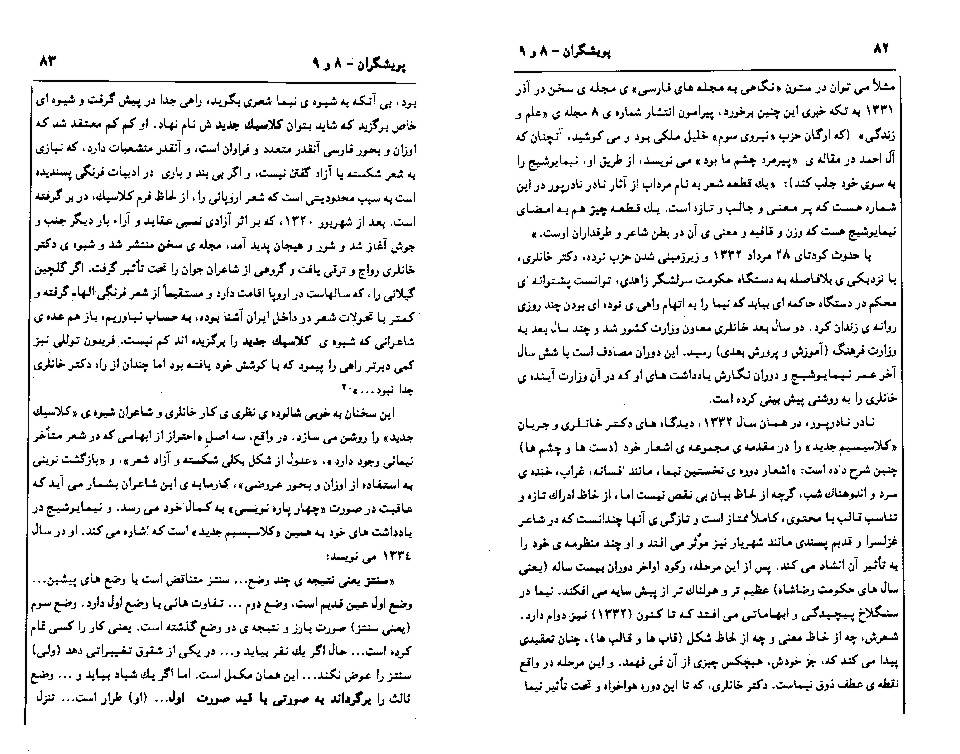 ۸۲ پویشگران - ۸ و ۹
مثلاً می توان در ستون «نگاهی به مجله های فارسی» ی مجله ی سخن در آذر
۱۳۳۱ به تکه خبری این چنین برخورد، پیرامون انتشار شماره ی ۸ مجله ی «علم و
زندگی» (که ارگان حزب «نیروی سوم» خلیل ملکی بود و می کوشید، آنچنان که
آل احمد در مقاله ی «پیرمرد چشم ما بود» می نویسد، از طریق او، نیمایوشیج را
به سوی خود جلب کند): «یك قطعه شعر به نام مرداب از آثار نادر نادرپور در این
شماره هست که پر معنی و جالب و تازه است. یك قطعه چیز هم به امضای
نیمایوشیج هست که وزن و قافیه و معنی ی آن در بطن شاعر و طرفداران اوست.»
با حدوث کودتای ۲۸ مرداد ۱۳۳۲ و زیرزمینی شدن حزب توده، دکتر خانلری،
با نزدیکی ی بلافاصله به دستگاه حکومت سرلشگر زاهدی، توانست پشتوانه ی
محکم در دستگاه حاکمه ای بیابد که نیما را به اتهام واهی ی توده ای بودن چند روزی
روانه ی زندان کرد. دو سال بعد خانلری معاون وزارت کشور شد و چند سال بعد به
وزارت فرهنگ (آموزش و پرورش بعدی) رسید. این دوران مصادف است با شش سال
آخر عمر نیمایوشیج و دوران نگارش یادداشت های او که در آن وزارت آینده ی
خانلری را به روشنی پیش بینی کرده است.
نادر نادرپور، در همان سال ۱۳۳۲، دیدگاه های دکتر خانلری و جریان
«کلاسیسیم جدید» را در مقدمه ی مجموعه ی اشعار خود (دست ها و چشم ها)
چنین شرح داده است: «اشعار دوره ی نخستین نیما، مانند افسانه، غراب، خنده ی
سرد و اندوهناك شب، گرچه از لحاظ بیان بی نقص نیست اما، از لحاظ ادراك تازه و
تناسب قالب با محتوی، کاملاً ممتاز است و تازگی ی آنها چندانست که در شاعر
غزلسرا و قدیم پسندی مانند شهریار نیز مؤثر می افتد و او چند منظومه ی خود را
به تأثیر آن انشاد می کند. پس از این مرحله، رکود اواخر دوران بیست ساله (یعنی
سال های حکومت رضاشاه) عظیم تر و هولناك تر از پیش سایه می افکند. نیما در
سنگلاخ پیچیدگی و ابهاماتی می افتد که تا کنون (۱۳۳۲) نیز دوام دارد.
شعرش، چه از لحاظ معنی و چه از لحاظ شکل (قاب ها و قالب ها)، چنان تعقیدی
پیدا می کند که، جز خودش، هیچکس چیزی از آن نمی فهمد. و این مرحله در واقع
نقطه ی عطف ذوق نیماست. دکتر خانلری، که تا این دوره هواخواه و تحت تأثیر نیما
پویشگران - ۸ و ۹ ۸۳
بود، بی آنکه به شیوه ی نیما شعری بگوید، راهی جدا در پیش گرفت و شیوه ای
خاص برگزید که شاید بتوان کلاسیك جدید ش نام نهاد. او کم کم معتقد شد که
اوزان و بحور فارسی آنقدر متعدد و فراوان است، و آنقدر منشعبات دارد، که نیازی
به شعر شکسته یا آزاد گفتن نیست، و اگر بی بند و باری در ادبیات فرنگی پسندیده
است به سبب محدودیتی است که شعر اروپائی را، از لحاظ فرم کلاسیك، در بر گرفته
است. بعد از شهریور ۱۳۲۰، که بر اثر آزادی نسبی عقاید و آراء بار دیگر جنب و
جوش آغاز شد و شور و هیجان پدید آمد، مجله ی سخن منتشر شد و شیوه ی دکتر
خانلری رواج و ترقی یافت و گروهی از شاعران جوان را تحت تأثیر گرفت. اگر گلچین
گیلانی را، که سالهاست در اروپا اقامت دارد و مستقیماً از شعر فرنگی الهام گرفته و
کمتر با تحولات شعر در داخل ایران آشنا بوده، به حساب نیاوریم، باز هم عده ی
شاعرانی که شیوه ی کلاسیك جدید را برگزیده اند کم نیست. فریدون توللی نیز
کمی دیرتر راهی را پیمود که با کوشش خود یافته بود اما چندان از راه دکتر خانلری
جدا نبود...»۲۰
این سخنان به خوبی شالوده ی نظری ی کار خانلری و شاعران شیوه ی «کلاسیك
جدید» را روشن می سازد. در واقع، سه اصل «احتراز از ابهامی که در شعر متأخر
نیمائی وجود دارد»، «عدول از شکل بکلی شکسته و آزاد شعر»، و «بازگشت نوینی
به استفاده از اوزان و بحور عروضی»، کارمایه ی این شاعران بشمار می آید که
عاقبت در صورت «چهار پاره نویسی» به کمال خود می رسد. و نیمایوشیج در
یادداشت های خود به همین «کلاسیسیم جدید» است که اشاره می کند. او در سال
۱۳۳٤ می نویسد:
«سنتز یعنی نتیجه ی چند وضع... سنتز متناقض است با وضع های پیشین...
وضع اول عین قدیم است، وضع دوم ... تفاوت هائی با وضع اول دارد. وضع سوم
(یعنی سنتز) صورت بارز و نتیجه ی دو وضع گذشته است. یعنی کار را کسی تمام
کرده است... حال اگر یك نفر بیاید و... در یکی از شقوق تغییراتی دهد (ولی)
سنتز را عوض نکند... این همان مکمل است. اما اگر یك شیاد بیاید و ... وضع
ثالث را برگرداند به صورتی با قید صورت اول... (او) طرار است... تنزل